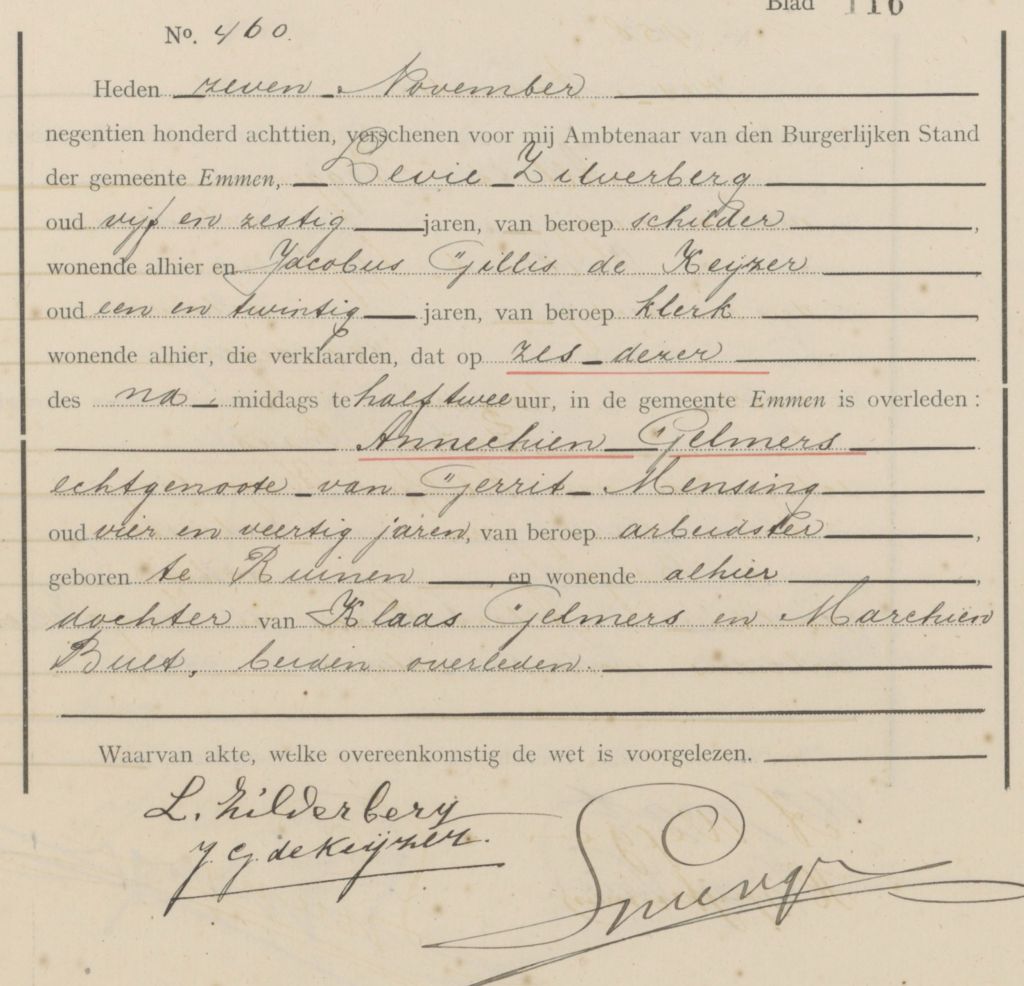 Blad 116
No. 460.
Heden zeven November
negentien honderd achttien, verschenen voor mij Ambtenaar van den Burgerlijken Stand
der gemeente Emmen, Levie Zilverberg
oud vijf en zestig jaren, van beroep schilder,
wonende alhier en Jacobus Gillis de Keyzer
oud een en twintig jaren, van beroep klerk,
wonende alhier, die verklaarden, dat op zes dezer
des na middags te half twee uur, in de gemeente Emmen is overleden:
Annechien Gelmers
echtgenoote van Gerrit Mensing
oud vier en veertig jaren, van beroep arbeidster,
geboren te Ruinen en wonende alhier,
dochter van Klaas Gelmers en Marchien
Bult, beiden overleden.
Waarvan akte, welke overeenkomstig de wet is voorgelezen.
L. Zilderberg
J G. de Keijzer.